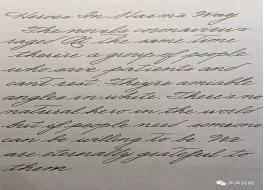 Heroes In Harm's Way
The novel coronavirus
at the same time
there're a group of people
who save patients and
can't rest. They're amiable
angles in white. There's no
natural hero in the world
but if people need someone
can be willing to be. We
are eternally grateful to
them